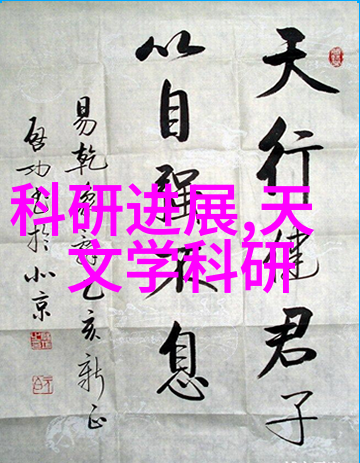 科研进展,天
文学科研
天行健君子
以自强不息
易乾象辞乙亥新正
启功书于北京